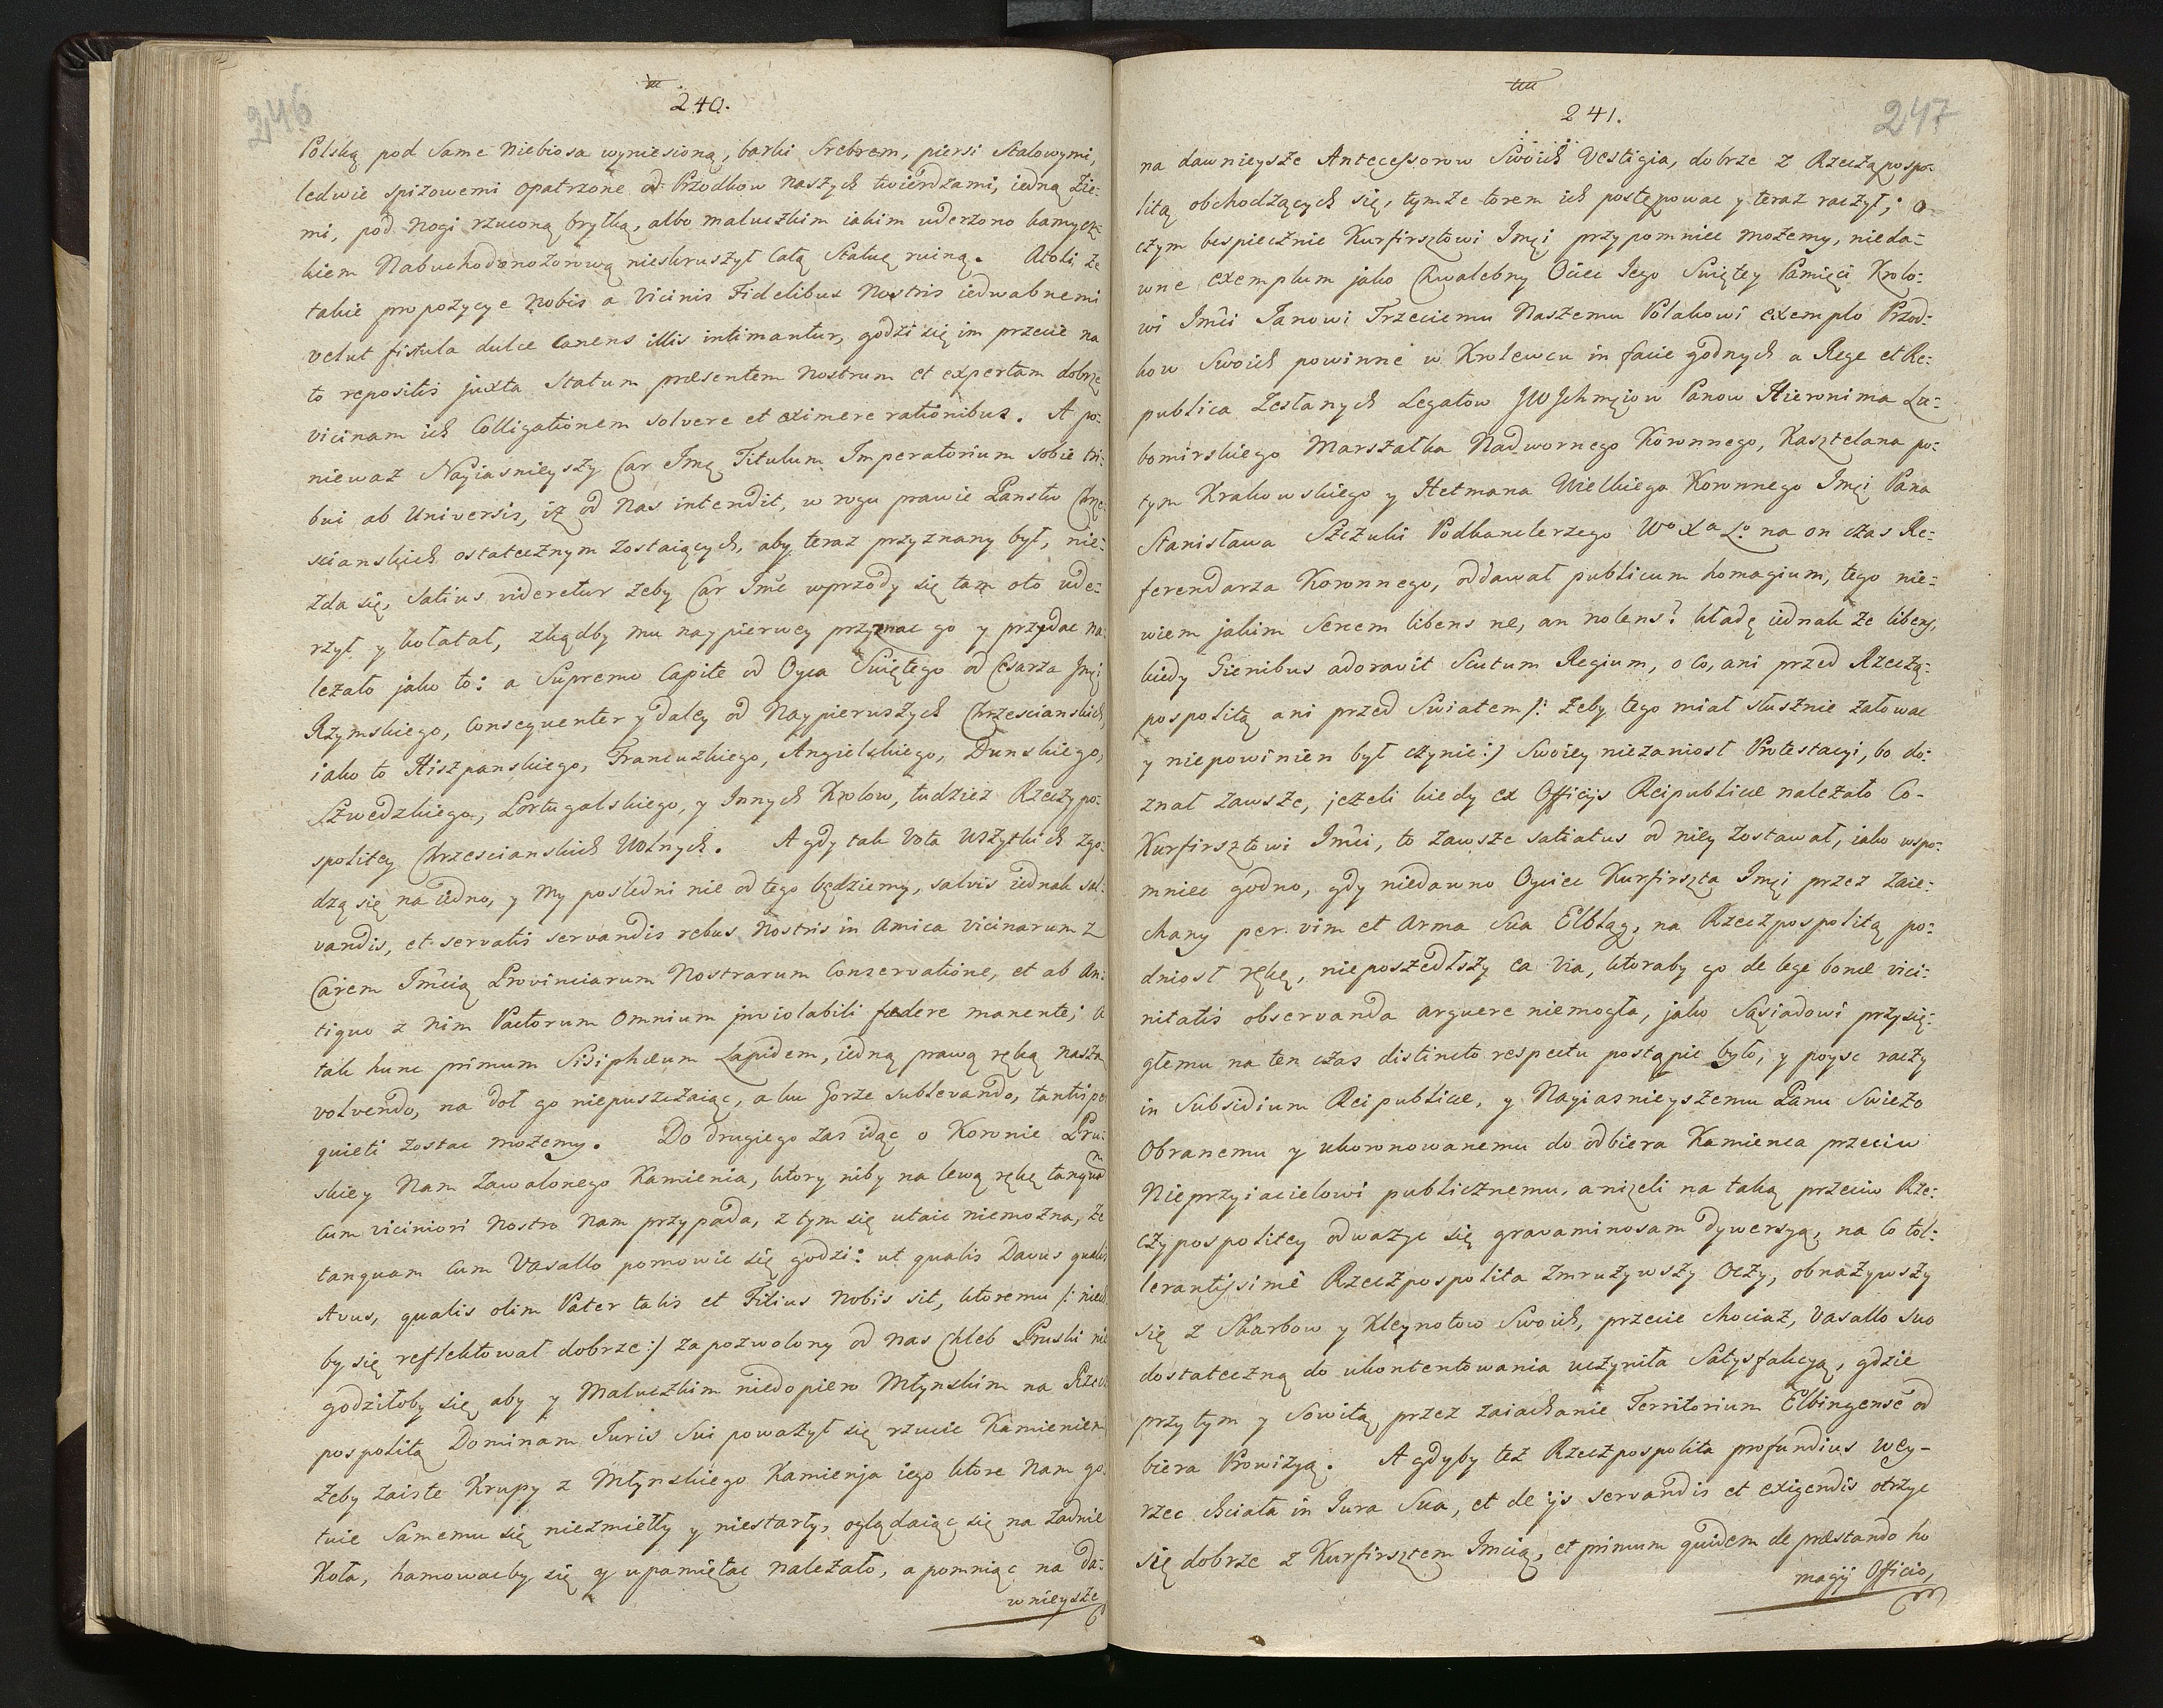 246
240.
Polską pod Same Niebiosa wyniesioną, barki Srebrem, piersi Stalowymi,
ledwie spiżowemi opatrzone od Przodkow naszych twierdzami, iedną Zie-
mi, pod Nogi rzuconą bryłką, albo maluczkim iakim uderzono kamycz-
kiem Nabuchodonozorową nieskruszył Całą Statuę ruiną. Atoli że
takie propozycye Nobis a Vicinis Fidelibus Nostris iedwabnemi
velut fistula dulce Canens illis intimantur, godzi się im przecie na
to repositis juxta Statum præsentem Nostrum et expertam dobrze
vicinam ich Colligationem solvere et eximere rationibus. A po-
niewaz Nayiasnieyszy Car Jmę Titulum Imperatorium sobie tri-
bui ab Universis, iż od Nas intendit, w rogu prawie Panstw Chrze-
scianskich ostatecznym Zostaiących, aby teraz przyznany był, nie-
zda się, Satius videretur żeby Car Jmć wprzody się tam oto ude-
rzył y kołatał, zkądby mu naypierwey przyznac go y przydac na-
leżało jako to: a Supremo Capite od Oyca Swiętego od Cesarza Jmci
Rzymskiego, Consequenter y daley od Naypierwszych Chrzescianskich,
iako to Hiszpanskiego, Francuzkiego, Angielskiego, Dunskiego,
Szwedzkiego, Portugalskiego, y Innych Krolow, tudziesz Rzeczypo-
spolitey Chrzescianskich Wolnych. A gdy tak Vota wszytkich zgo-
dzą się na iedno, y My posledni nie od tego będziemy, salvis iednak sal-
vandis, et servatis servandis rebus Nostris in Amica vicinarum z
Carem Jmcią Provinciarum Nostrarum Conservatione, et ab An-
tiquo z Nim Pactorum Omnium inviolabili fœdere manente; a
tak hunc primum Sisiphæum Lapidem, iedną prawą ręką naszą
volvendo, na doł go niepuszczaiąc, a ku Gorze sublevando, tantisper
quieti zostac możemy. Do drugiego zas idąc o Koronie Pru-
skiey Nam Zawalonego Kamienia, ktory niby na lewą rękę tanquam
Cum viciniori Nostro Nam przypada, z tym się utaic niemożna, że
tanquam Cum Vasallo pomowic się godzi: ut qualis Davus qualis
Avus, qualis olim Pater talis et Filius Nobis sit, ktoremu /: niech
by się reflektował dobrze :/ za pozwolony od nas Chleb Pruski nie
godziłoby się, aby y Maluczkim niedopiero Młynskim na Rzecz-
pospolitą Dominam Iuris Sui poważył się rzucic Kamieniem
Żeby zaiste Krupy z Młynskiego Kamienia iego ktore Nam go-
tuie Samemu się niezmiełły y niestarły, oglądaiąc się na Zadnie
Koła, hamowacby się y upamiętac należało, a pomniąc na da-
wnieysze
247
241.
na dawnieysze Antecessorow Swoich Vestigia, dobrze z Rzecząpospo-
litą obchodzących się, tymże torem ich postępowac y teraz raczył; o
czym bespiecznie Kurfirsztowi Jmci przypomniec możemy, nieda-
wne exemplum jako Chwalebny Ociec Jego Swiętey Pamięci Krolo-
wi Jmci Janowi Trzeciemu Naszemu Polakowi exemplo Przod-
kow Swoich powinne w Krolewcu in facie godnych a Rege et Re-
publica Zesłanych Legatow JWJchmciow Panow Hieronima Lu-
bomirskiego Marszałka Nadwornego Koronnego, Kasztelana po-
tym Krakowskiego y Hetmana Wielkiego Koronnego Jmci Pana
Stanisława Szczuki Podkanclerzego Wo Xa Lo na on czas Re-
ferendarza Koronnego, oddawał publicum homagium, tego nie-
wiem jakim Sercem libens ne, an nolens? kładę iednak że libens,
kiedy Gienibus adoravit Scutum Regium, o co, ani przed Rzeczą-
pospolitą ani przed Swiatem /: żeby tego miał słusznie załowac
y niepowinien był czynic :/ Swoiey niezaniosł Protestacyi, bo do-
znał zawsze, jeżeli kiedy ex Officijs Reipublicæ należało Co-
Kurfirsztowi Jmci, to zawsze satiatus od niey zostawał, iako wspo-
mniec godno, gdy niedawno Oyciec Kurfirszta Jmci przez zaie-
chany per vim et Arma Sua Elbląg, na Rzeczpospolitą po-
dniosł rękę, nieposzedłszy ea via, ktoraby go de lege bonæ vici-
nitatis observanda arguere niemogła, jako Sąsiadowi przysię-
głemu na ten czas distincto respectu postąpic było, y poysc raczy
in Subsidium Reipublicæ, y Nayiasnieyszemu Panu Swieżo
Obranemu y ukoronowanemu do odbiera Kamienca przeciw
Nieprzyiacielowi publicznemu, aniżeli na taką przeciw Rze-
czypospolitey odważyc się gravaminosam dywersyą, na Co tol-
lerantissimè Rzeczpospolita zmrużywszy Oczy, obnażywszy
się z Skarbow y Kleynotow Swoich, przecie chociaż, Vasallo suo
dostateczną do ukontentowania uczyniła Satysfakcyą, gdzie
przy tym y Sowitą, przez zaiachanie Territorium Elbingensè od
biera Prowizyą. A gdyby też Rzeczpospolita profundius wey-
rzec chciała in Iura Sua, et de ijs servandis et exigendis otrzyc
się dobrze z Kurfirsztem Jmcią, et primum quidem de præstando ho
magij Officio,